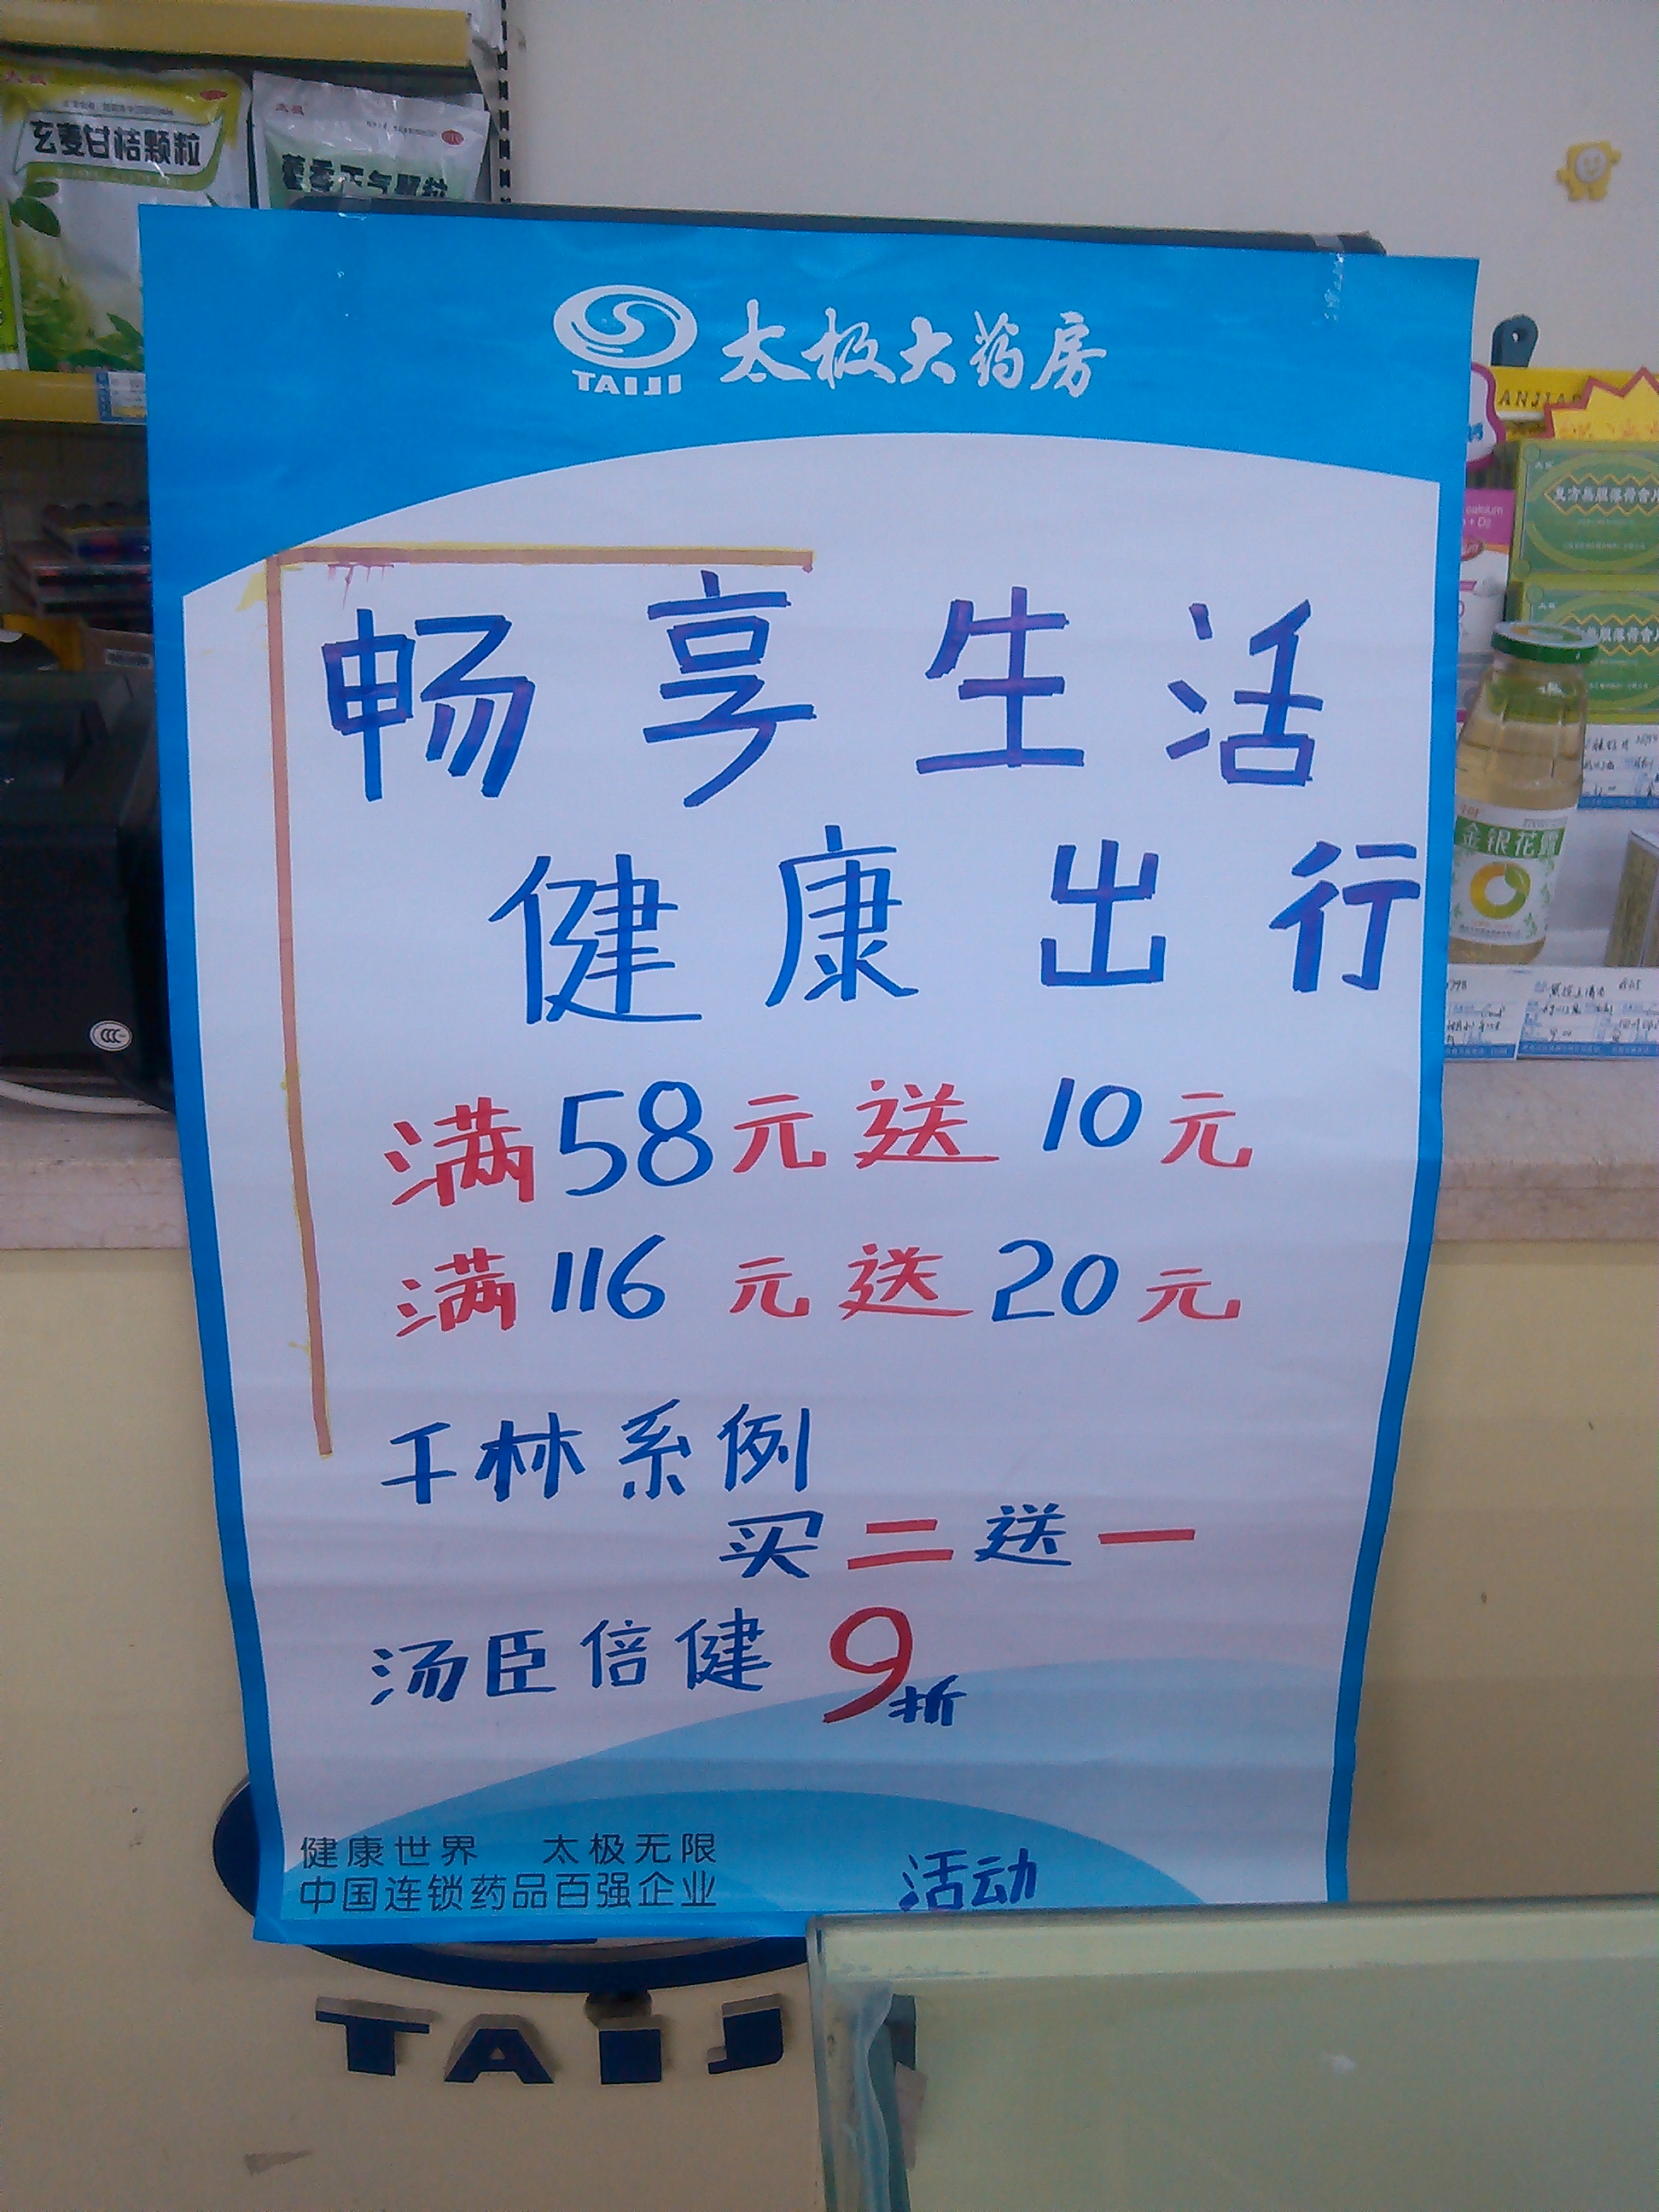 玄麦甘桔颗粒
藿香正气颗粒
TAIJI 太极大药房
畅享生活
健康出行
满58元送10元
满116元送20元
千林系例
买二送一
汤臣倍健9折
健康世界 太极无限
中国连锁药品百强企业
活动
TAIJI
ANJIA
calcium
+ D3
金银花露